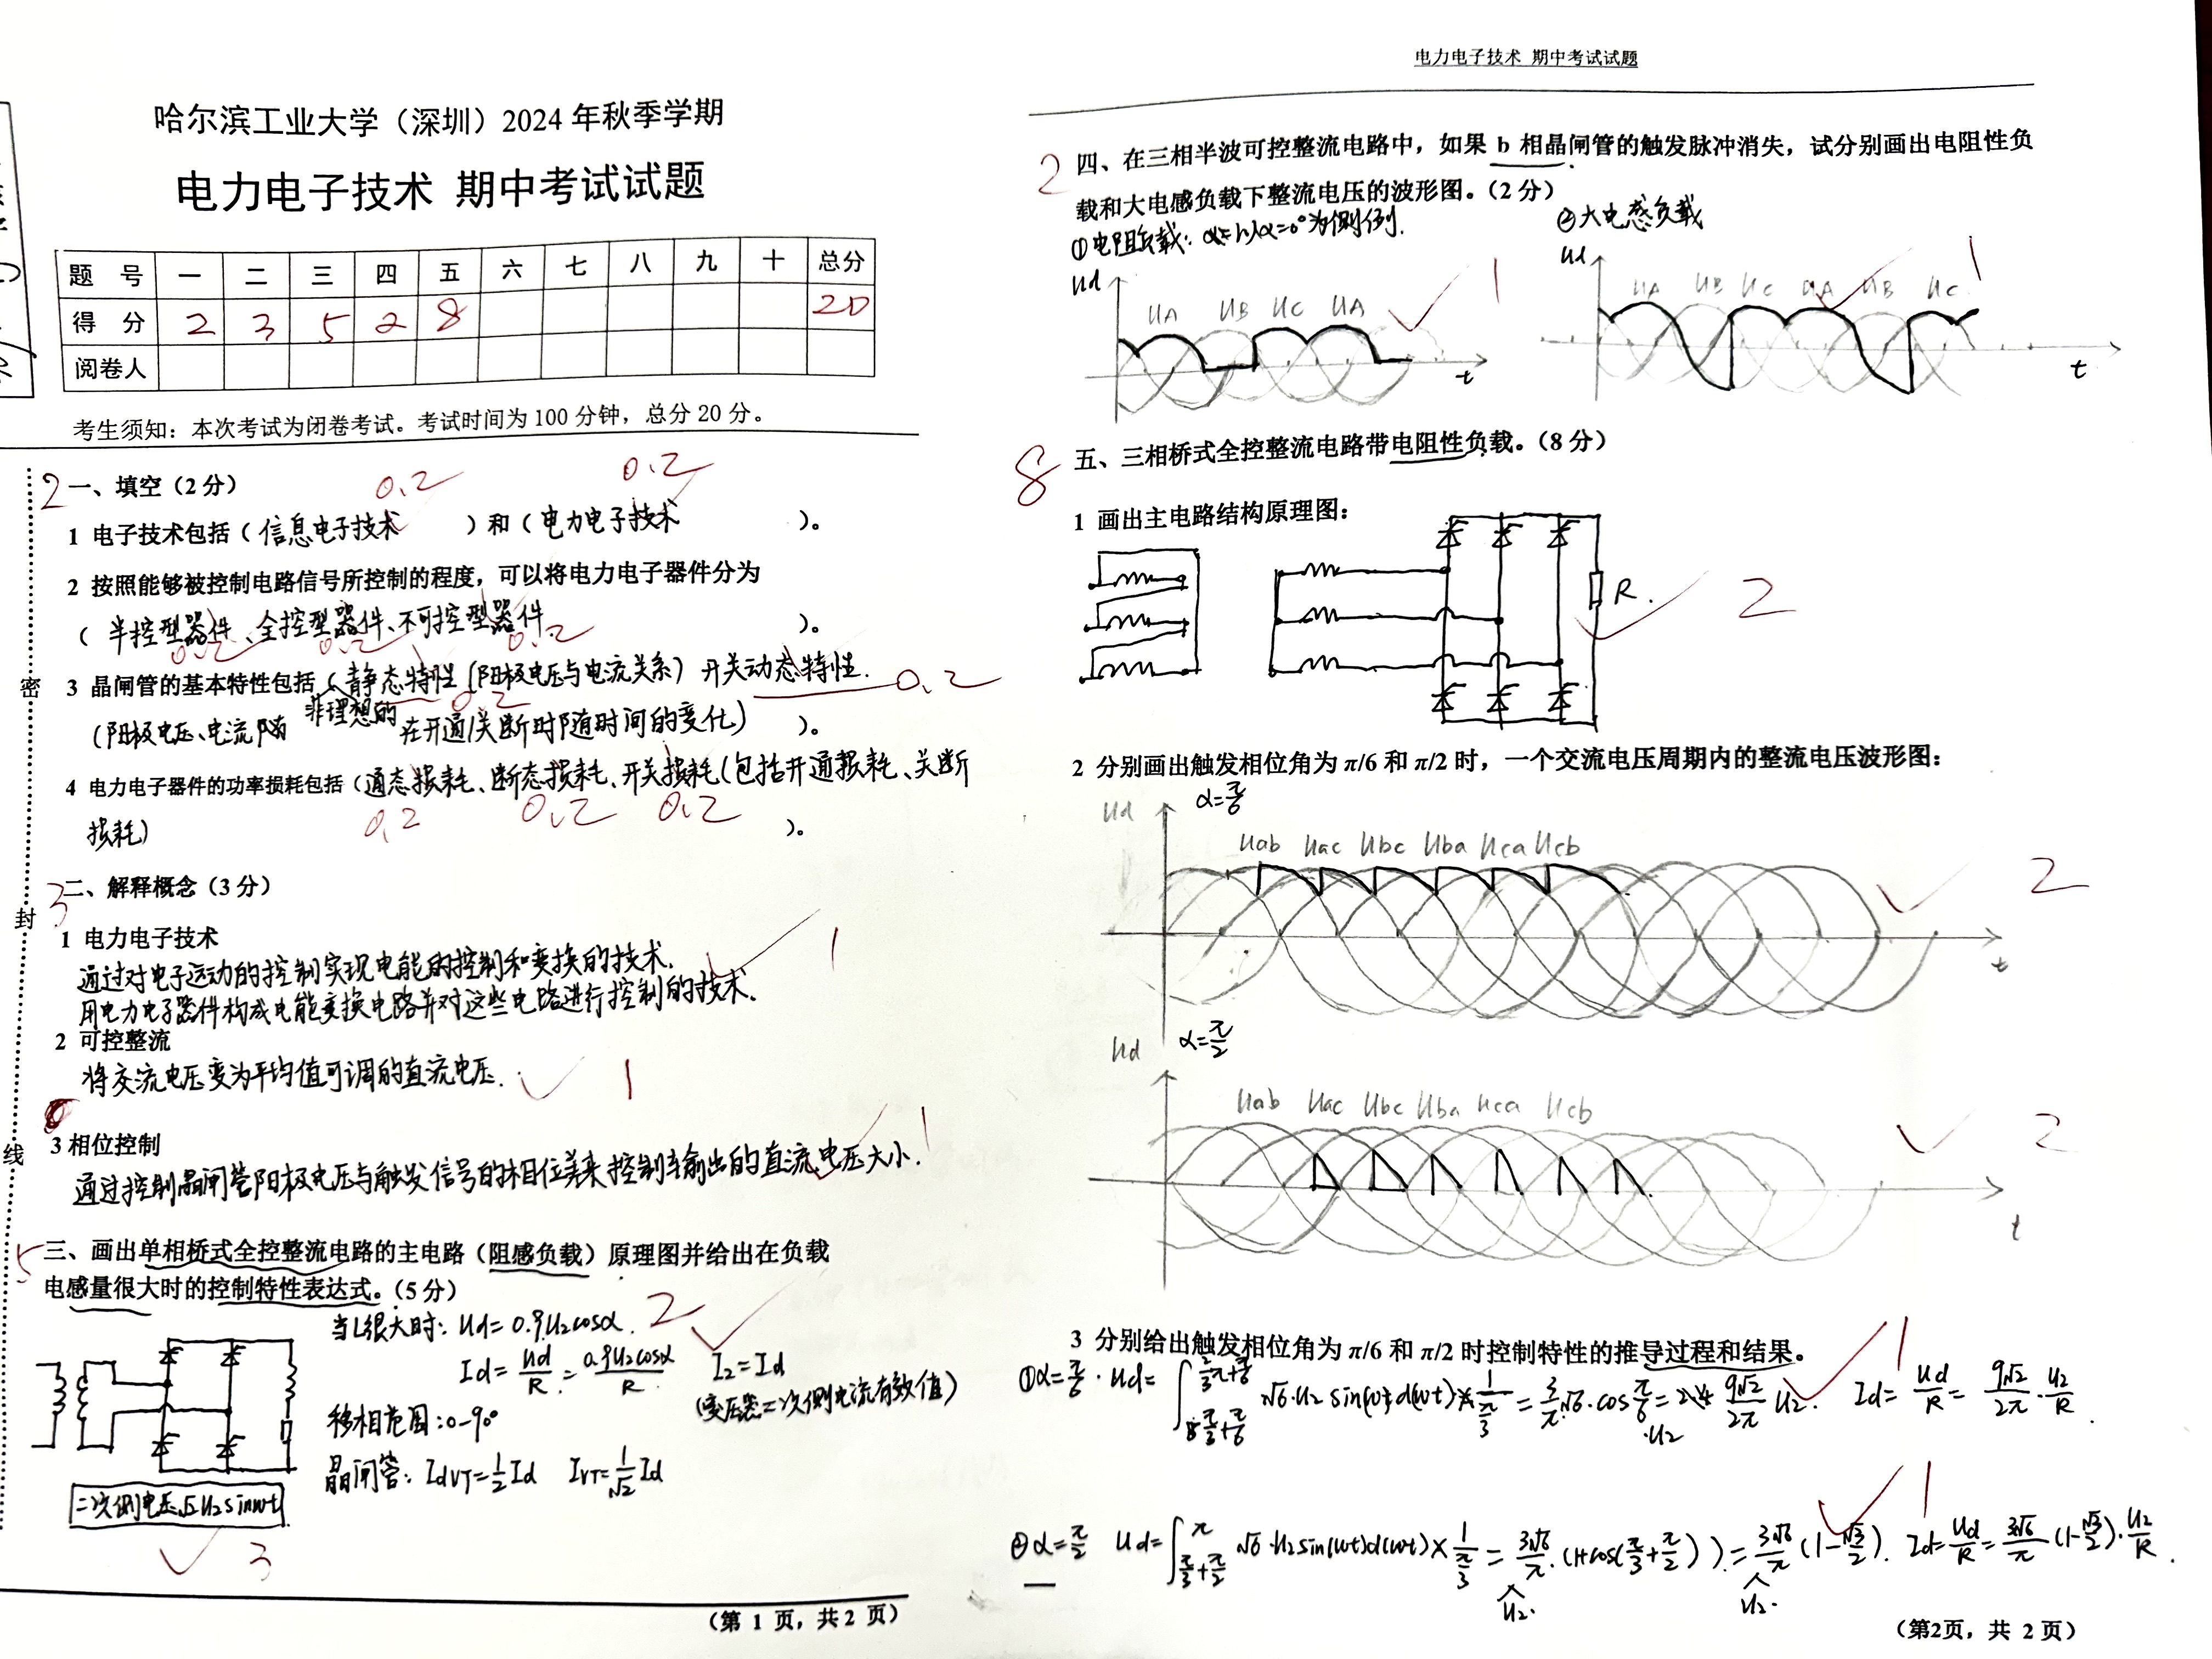 哈尔滨工业大学（深圳）2024 年秋季学期
电力电子技术 期中考试试题
题 号 一 二 三 四 五 六 七 八 九 十 总分
得 分 2 3 5 2 8 20
阅卷人
考生须知：本次考试为闭卷考试。考试时间为 100 分钟，总分 20 分。
密
封
线
2 一、填空（2 分）
0.2 0.2
1 电子技术包括（信息电子技术）和（电力电子技术）。
2 按照能够被控制电路信号所控制的程度，可以将电力电子器件分为
（半控型器件、全控型器件、不可控型器件）。
0.2 0.2 0.2
3 晶闸管的基本特性包括（静态特性（阳极电压与电流关系）开关动态特性.
0.2 0.2
非理想的
（阳极电压、电流 在开通/关断时随时间的变化）)。
4 电力电子器件的功率损耗包括（通态损耗、断态损耗、开关损耗（包括开通损耗、关断
0.2 0.2 0.2
损耗）)。
3 二、解释概念（3 分）
1 电力电子技术
通过对电子运动的控制实现电能的控制和变换的技术.
用电力电子器件构成电能变换电路并对这些电路进行控制的技术.
1
2 可控整流
将交流电压变为平均值可调的直流电压.
1
3 相位控制
通过控制晶闸管阳极电压与触发信号的相位差来控制输出的直流电压大小.
1
5 三、画出单相桥式全控整流电路的主电路（阻感负载）原理图并给出在负载
电感量很大时的控制特性表达式。（5 分）
当L很大时: Ud= 0.9U2cosα. 2
Id= Ud/R = 0.9U2cosα/R I2=Id
(变压器二次侧电流有效值)
移相范围: 0-90°
晶闸管: IdVT=1/2 Id IVT=1/√2 Id
二次侧电压√2U2sinwt
3
（第 1 页，共 2 页）
电力电子技术 期中考试试题
2 四、在三相半波可控整流电路中，如果 b 相晶闸管的触发脉冲消失，试分别画出电阻性负
载和大电感负载下整流电压的波形图。（2 分）
①电阻负载: 以α=0°为例. ②大电感负载
Ud UA UB UC UA t 1
Ud UA UB UC UA UB UC t 1
8 五、三相桥式全控整流电路带电阻性负载。（8 分）
1 画出主电路结构原理图：
R. 2
2 分别画出触发相位角为 π/6 和 π/2 时，一个交流电压周期内的整流电压波形图：
Ud α=π/6
Uab Uac Ubc Uba Uca Ucb
t
2
Ud α=π/2
Uab Uac Ubc Uba Uca Ucb
t
2
3 分别给出触发相位角为 π/6 和 π/2 时控制特性的推导过程和结果。
1
①α=π/6. Ud= ∫ √6·U2 sin(wt)d(wt)×1/(π/3) = 3/π √6·cos π/6 ·U2 = 9√2/2π U2. Id= Ud/R = 9√2/2π · U2/R.
1
②α=π/2 Ud=∫ π π/3+π/2 √6·U2sin(wt)d(wt)×1/(π/3) = 3√6/π U2·(1+cos(π/3+π/2)) = 3√6/π U2·(1-√3/2). Id=Ud/R=3√6/π (1-√3/2)·U2/R.
（第2页，共 2 页）